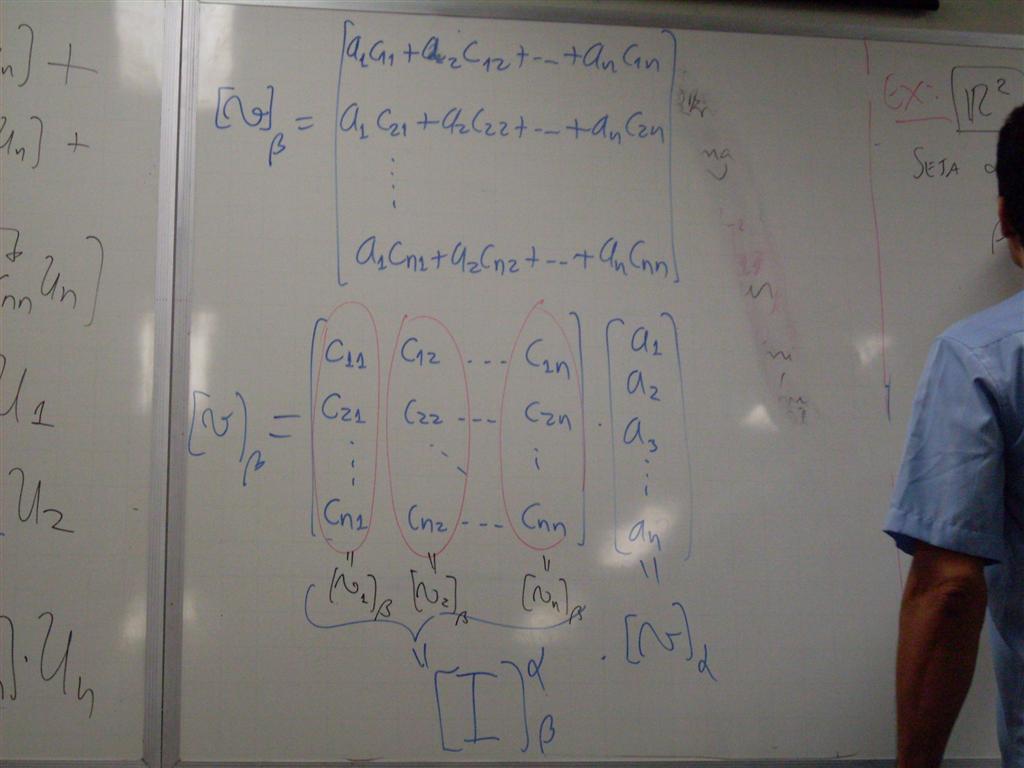 n] +
u_n] +
c_nn u_n)
u_1
u_2
] . u_n
[v]_β = [a_1c_11 + a_2c_12 + ... + a_nc_1n
a_1c_21 + a_2c_22 + ... + a_nc_2n
⋮
a_1c_n1 + a_2c_n2 + ... + a_nc_nn]
[v]_β = [c_11 c_12 ... c_1n] . [a_1
c_21 c_22 ... c_2n a_2
⋮ ⋱ ⋮ a_3
⋮
c_n1 c_n2 ... c_nn a_n]
= = = =
[v_1]_β [v_2]_β [v_n]_β . [v]_α
=
[I]^α_β
Ex: ℝ²
SEJA α
β